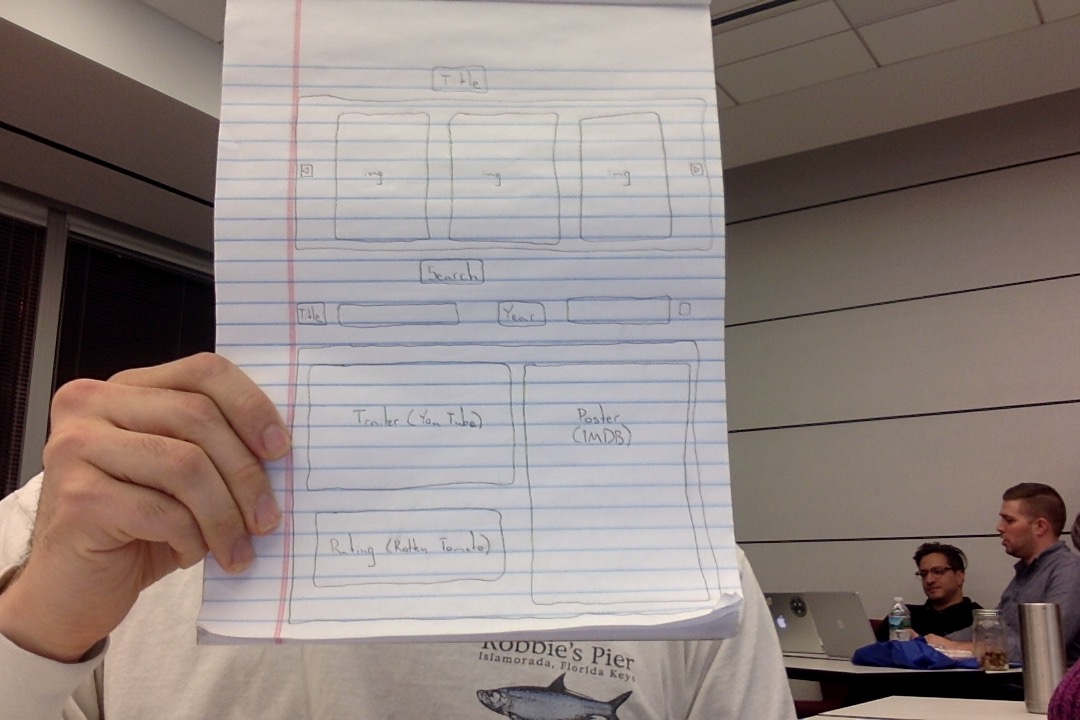 Title
img img img
Search
Title Year
Trailer (You Tube)
Poster
(IMDB)
Rating (Rotten Tomato)
Robbie's Pier
Islamorada, Florida Keys